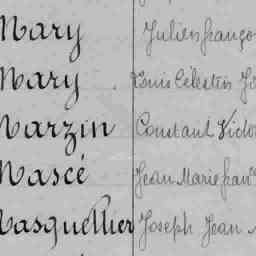 Mary Julien franço
Mary Louis Célestin Jo
Marzin Constant Victo
Mascé Jean Marie fran
Masquellier Joseph Jean